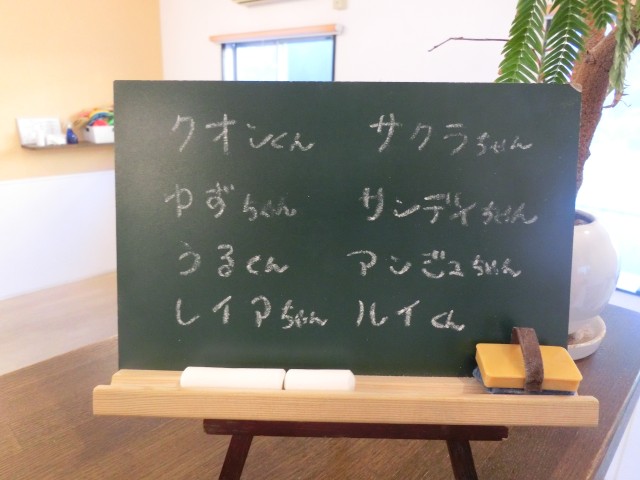 クオンくん サクラちゃん
ゆずちゃん サンディちゃん
うるくん アンジュちゃん
レイアちゃん ルイくん